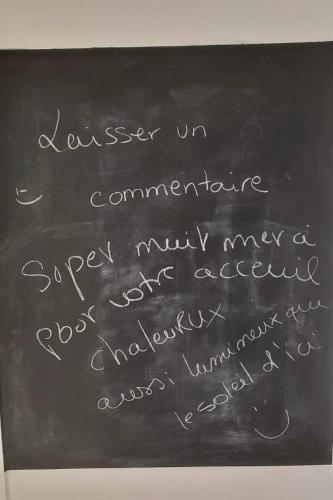 Laisser un
commentaire
Super nuit merci
pour votre acceuil
chaleureux
aussi lumineux que
le soleil d'ici